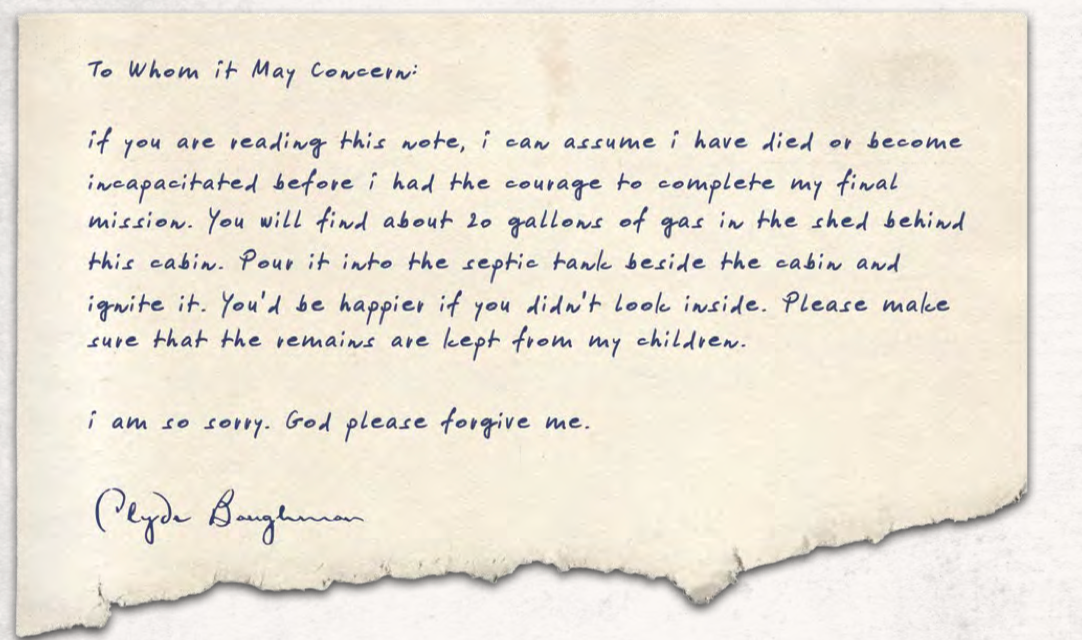 To Whom it May Concern:
if you are reading this note, i can assume i have died or become
incapacitated before i had the courage to complete my final
mission. You will find about 20 gallons of gas in the shed behind
this cabin. Pour it into the septic tank beside the cabin and
ignite it. You'd be happier if you didn't look inside. Please make
sure that the remains are kept from my children.
i am so sorry. God please forgive me.
Clyde Baughman